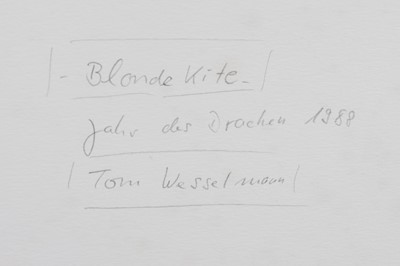 - Blonde Kite -
Jahr des Drachen 1988
Tom Wesselmann